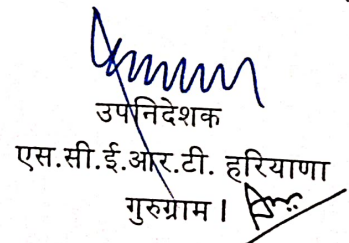 उपनिदेशक
एस.सी.ई.आर.टी. हरियाणा
गुरुग्राम।